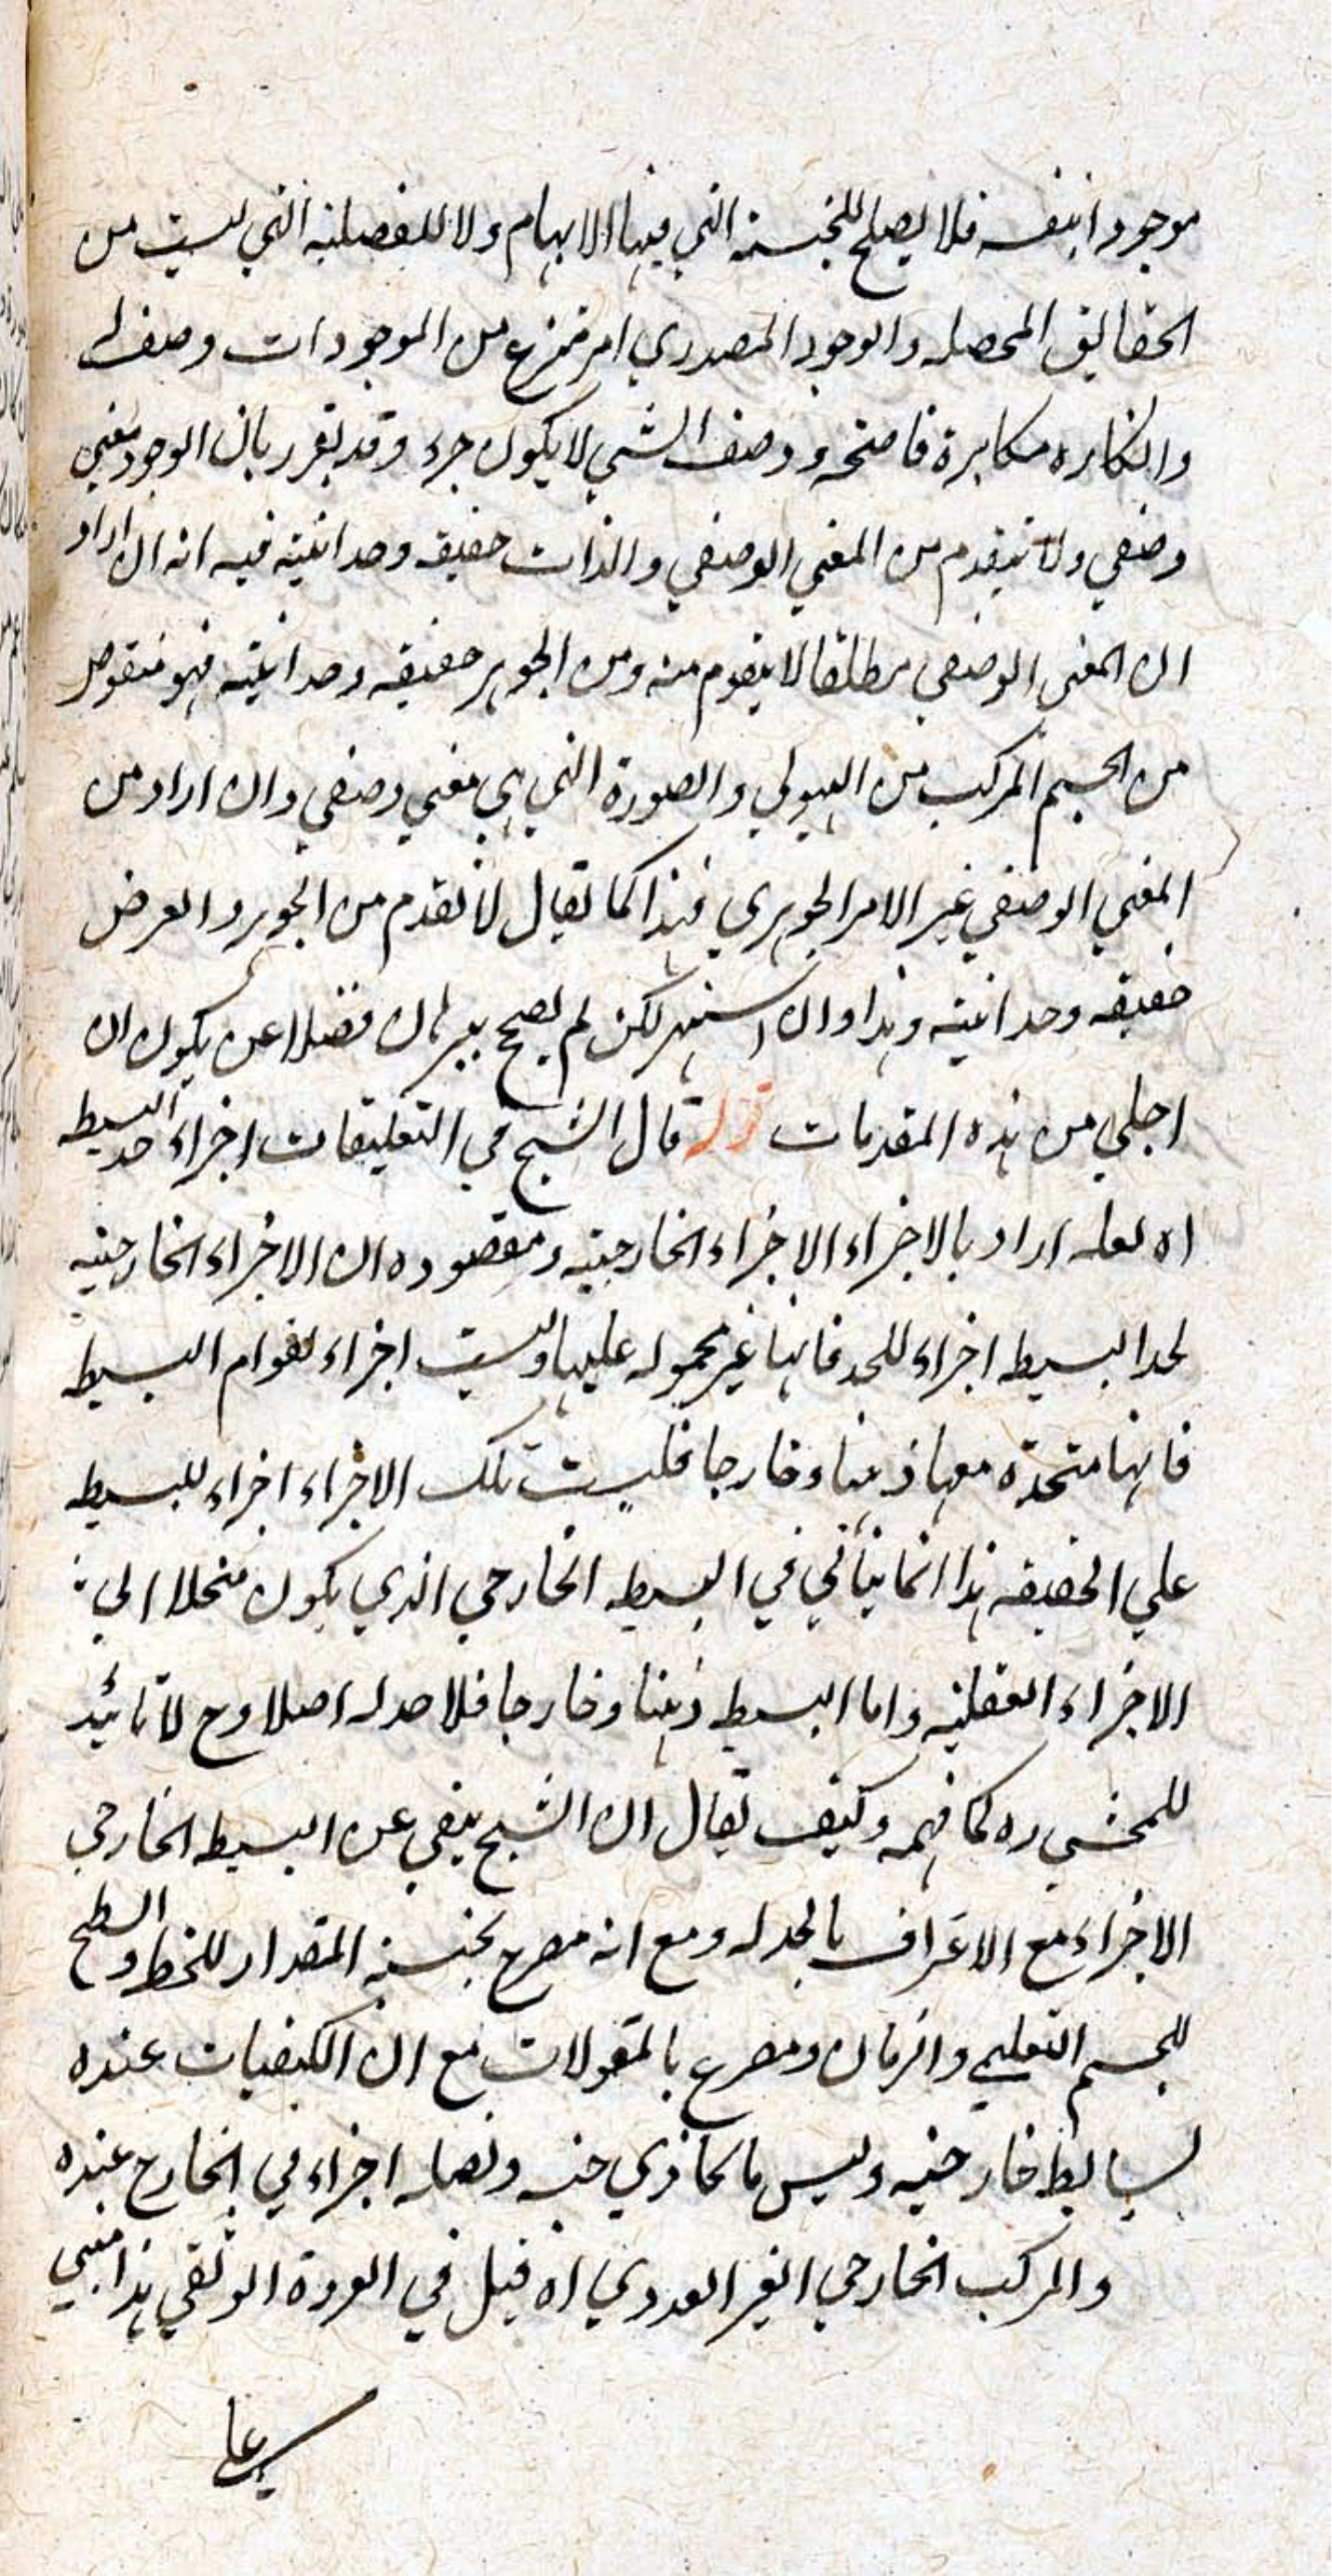 موجودا بنفسه فلا يصلح للجنسية التي فيها الابهام ولا للفصلية التي ليست من
الحقائق المحصله والوجود المصدري امر منتزع من الموجودات وصف له
وانكاره مكابرة فاضحه ووصف الشي لا يكون جزء وقد يقرر بان الوجود معني
وصفي ولا يتقدم من المعني الوصفي والذات حقيقه وحدانية فيه انه ان اراد
ان المعني الوصفي مطلقا لا يتقوم منه ومن الجوهر حقيقه وحدانية فهو منقوض
من الجسم المركب من الهيولي والصورة التي هي معني وصفي وان اراد من
المعني الوصفي غير الامر الجوهري فهذا كما يقال لا تقدم من الجوهر والعرض
حقيقه وحدانية وهذا وان اشتهر لكن لم يصح ببرهان فضلا عن يكون ان
اجلي من هذه المقدمات قوله قال الشيخ في التعليقات اجزاء حد البسيط
اه لعله اراد بالاجزاء الاجزاء الخارجية ومقصوده ان الاجزاء الخارجية
لحد البسيط اجزاء للحد فانها غير محموله عليها وليست اجزاء لقوام البسيط
فانها متحدة معها ذهنا وخارجا فليست تلك الاجزاء اجزاء للبسيط
علي الحقيقه هذا انما يتأتي في البسيط الخارجي الذي يكون منحلا الي
الاجزاء العقلية واما البسيط ذهنا وخارجا فلا حد له اصلا وح لا تائيد
للمحشي ره كما فهمه وكيف يقال ان الشيخ ينفي عن البسيط الخارجي
الاجزاء مع الاعتراف بالحد له ومع انه مصرح بجنسية المقدار للخط والسطح
للجسم التعليمي والزمان ومصرح بالمقولات مع ان الكيفيات عنده
بسائط خارجيه وليس ما يحاذي جنسه وفصله اجزاء في الخارج عنده
والمركب الخارجي الغير العددي اه قيل في العروة الوثقي هذا مبني
علي